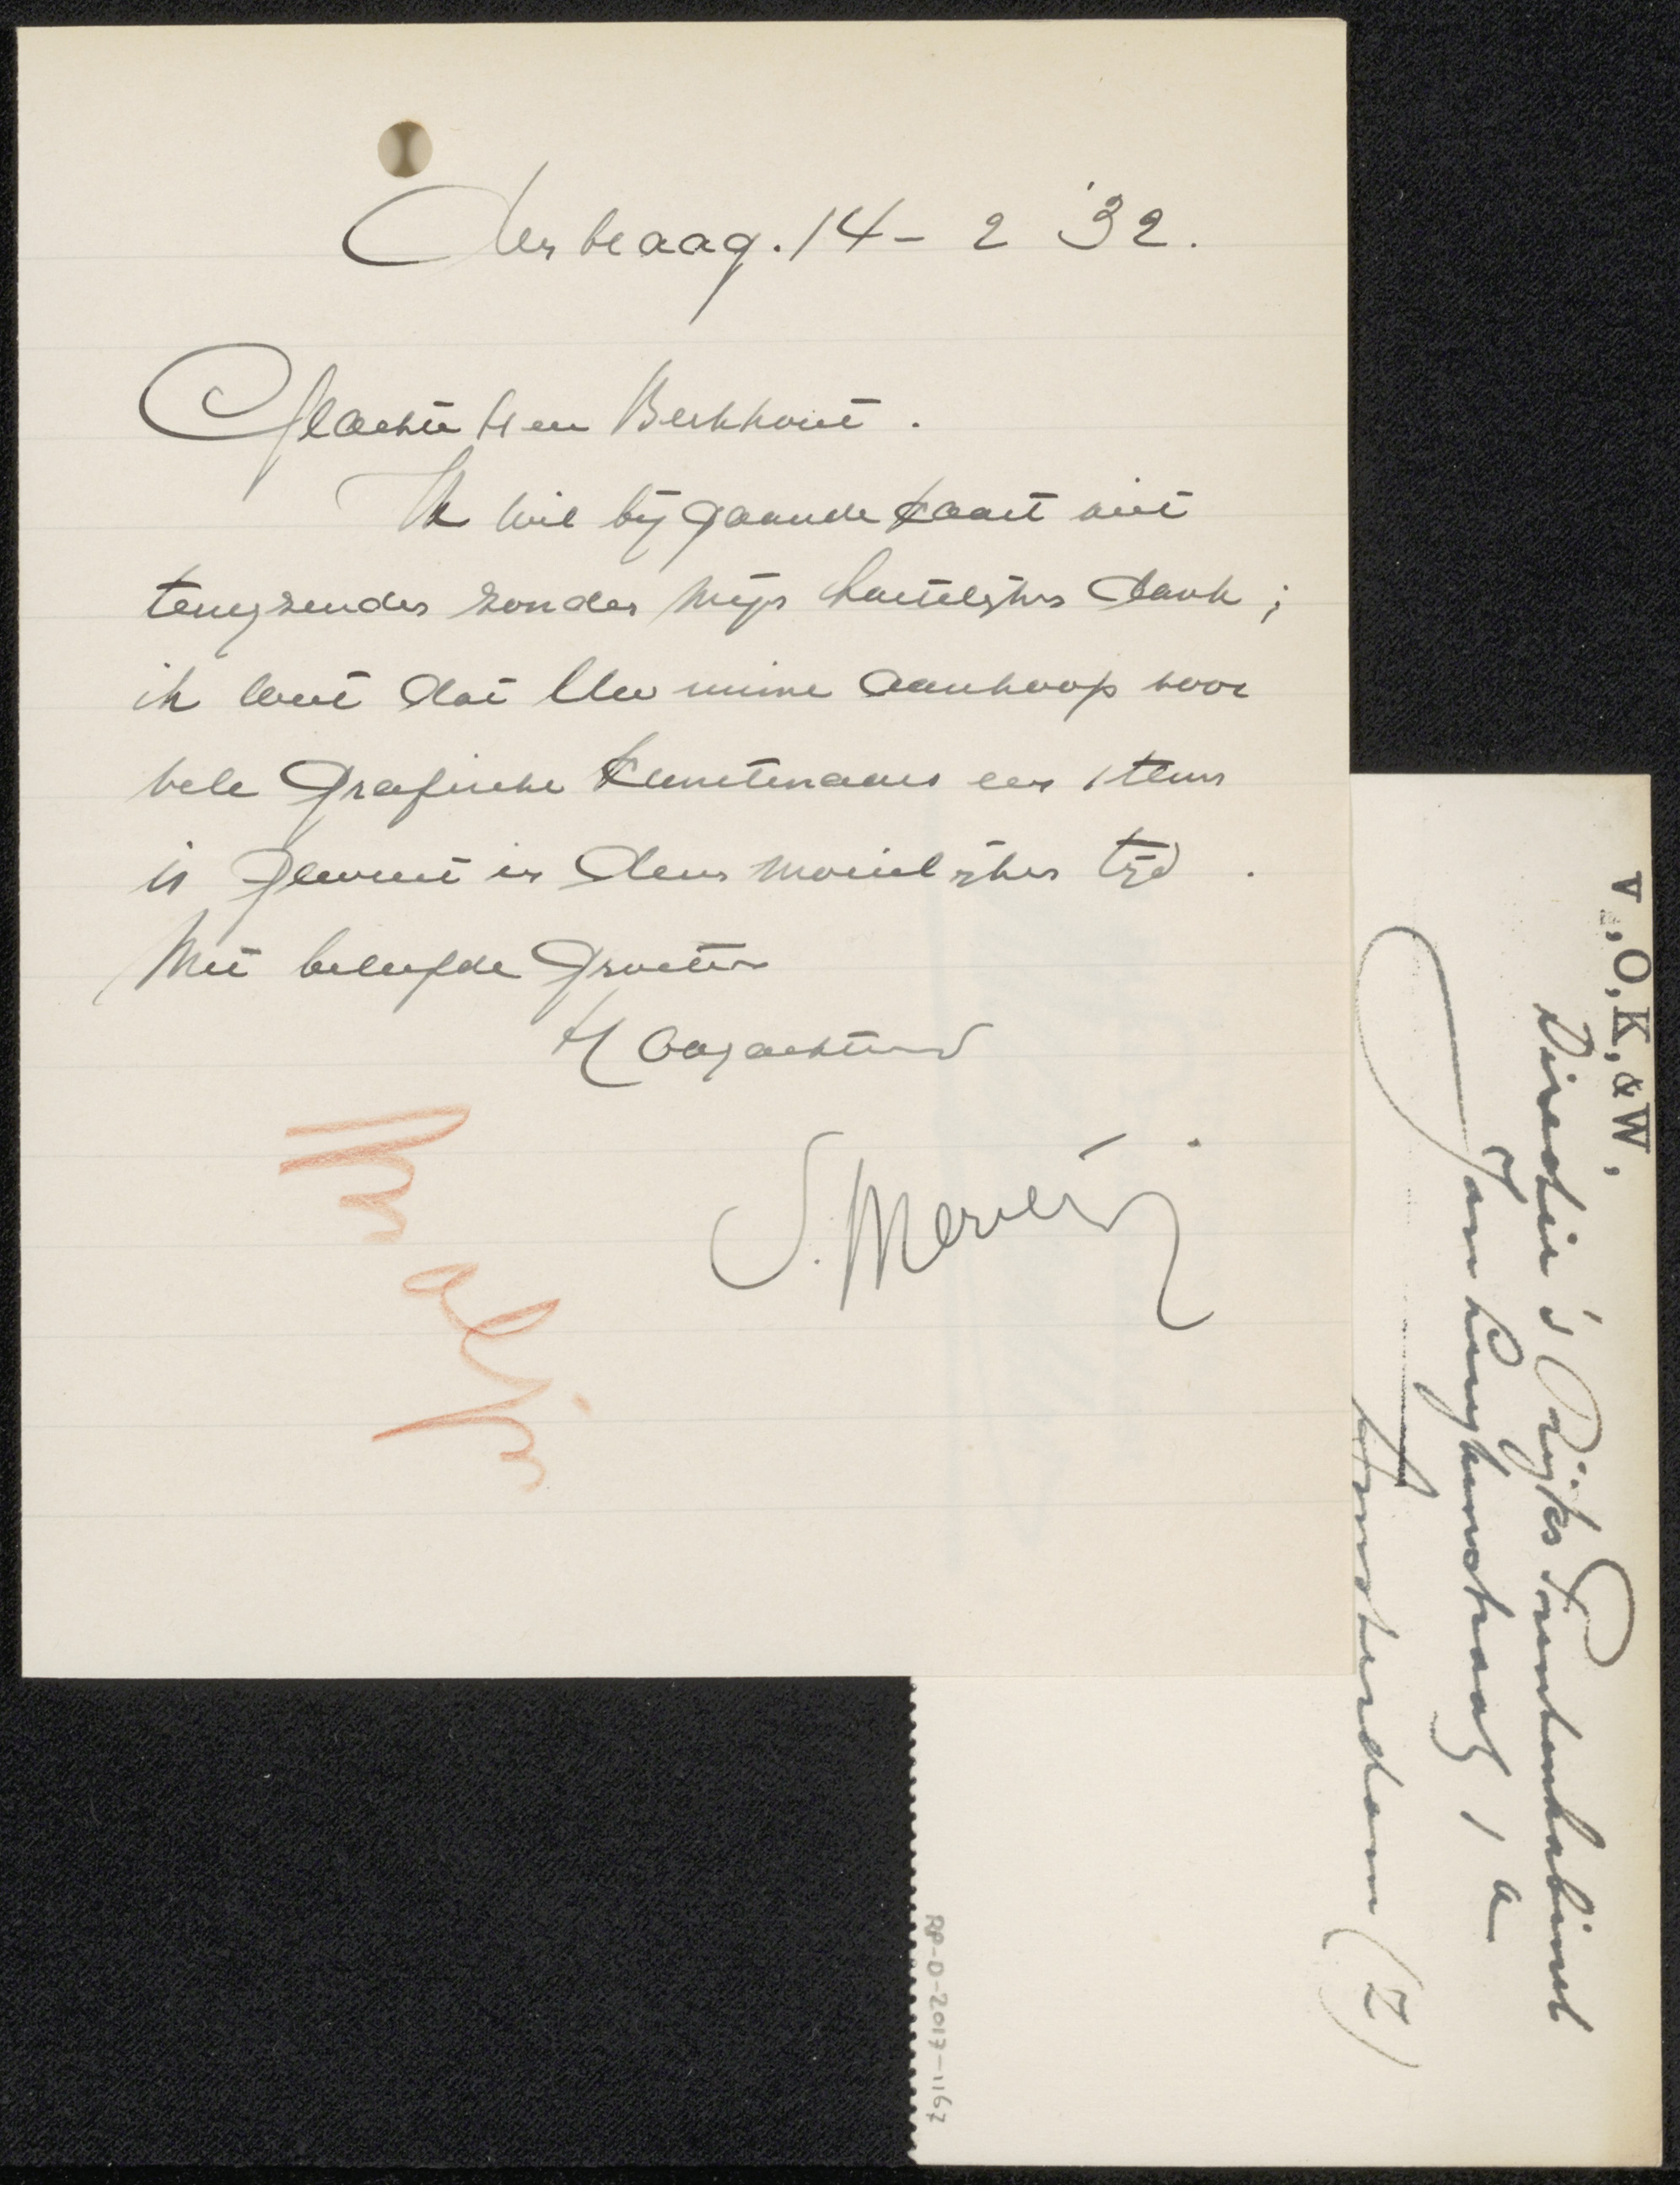 den haag. 14 - 2 '32.
Geachte Heer Berkhout.
Ik wil bijgaande kaart niet
terugzenden zonder mijn hartelijken dank;
ik weet dat Uw ruime aankoop voor
vele grafische kunstenaars een steun
is geweest in dezen moeielijken tijd.
Met beleefde groeten
Hoogachtend
S. Moulijn.
Moulijn
V.,O,K,&W,
Directie 's Rijks Prentenkabinet
Jan Luykenstraat 1 a
Amsterdam (Z)
RP-D-2017-1167